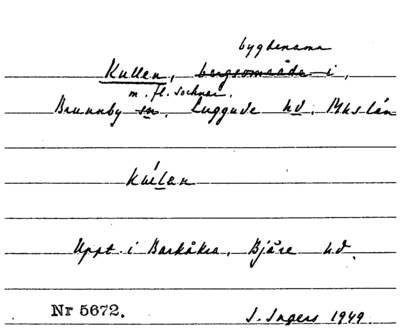 bygdenamn
Kullen, bergsområde i,
m. fl. socknar.
Brunnby sn. Luggude hd. Mhs län
Uppt. i Barkåkra, Bjäre hd.
Nr 5672.
I. Ingers 1949.